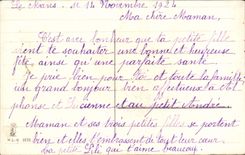 Le Mans, le 12 Novembre 1924
Ma chère Maman,
C'est avec bonheur que ta petite fille
vient te souhaiter une bonne et heureuse
fête ainsi qu'une parfaite santé.
Je prie bien pour toi et toute la famille
un grand bonjour bien affectueux à
phonse et Lucienne et au petit André.
Maman et ses trois petites filles se portent
bien et elles t'embrassent de tout leur cœur.
Ta petite qui t'aime beaucoup.